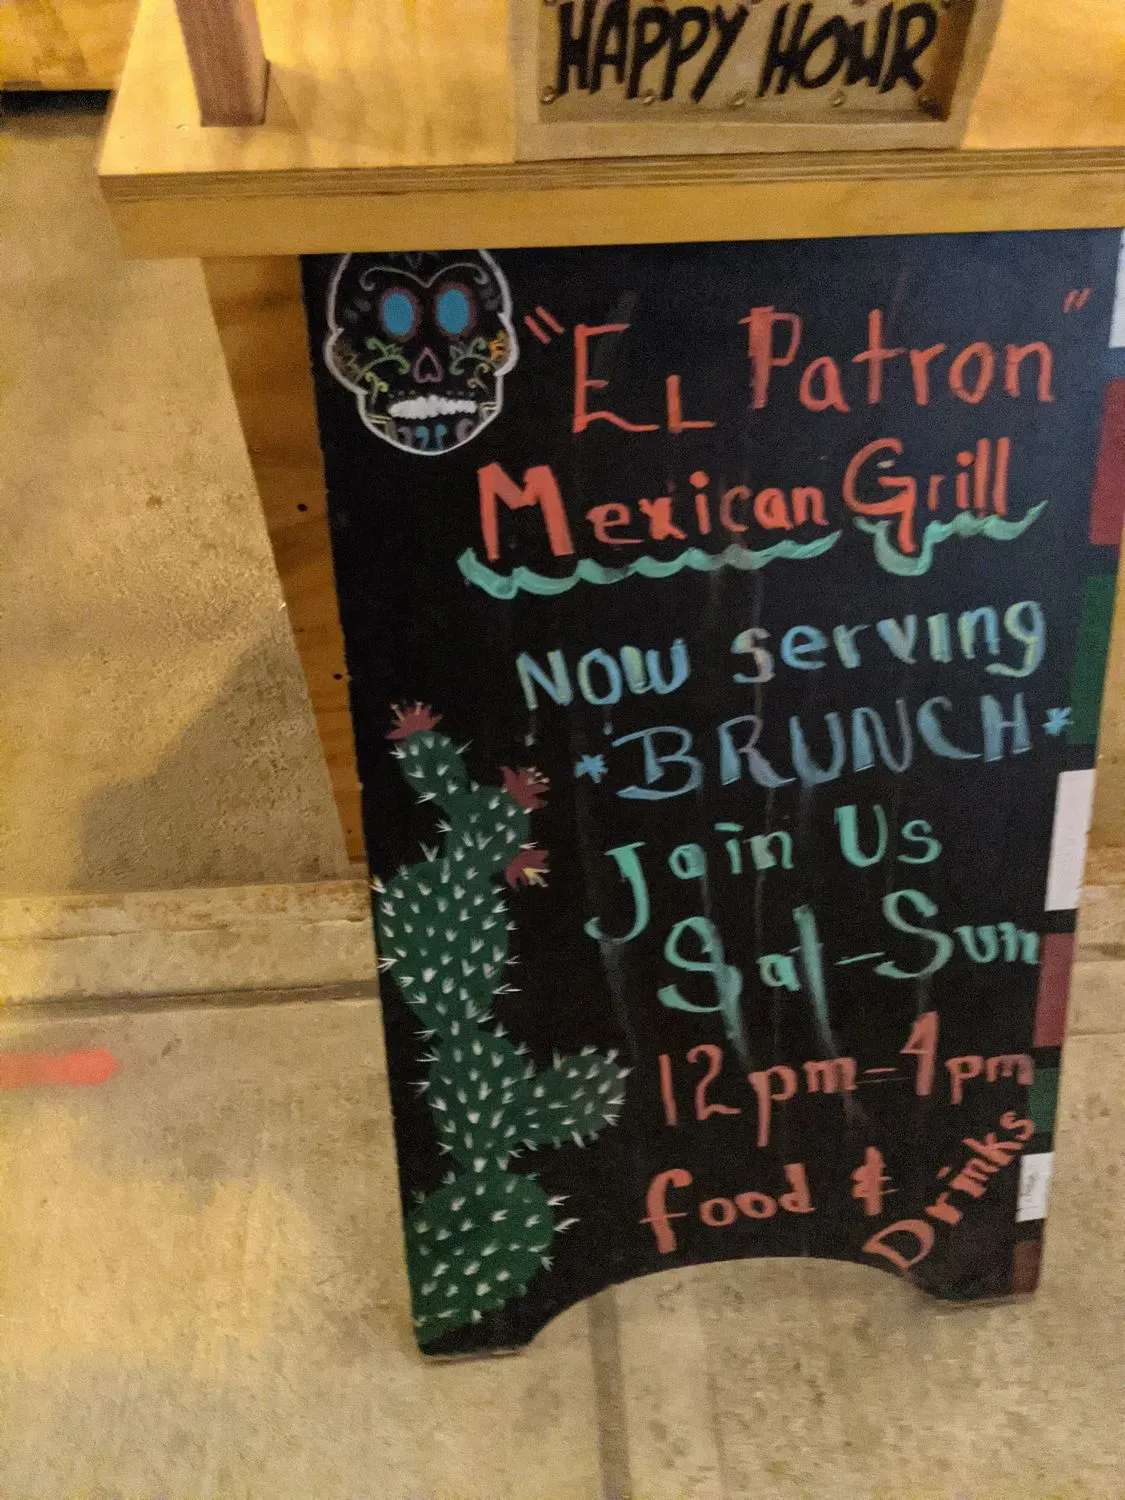 HAPPY HOUR
"EL Patron"
Mexican Grill
Now serving
*BRUNCH*
Join Us
Sat-Sun
12pm-4pm
food &
Drinks